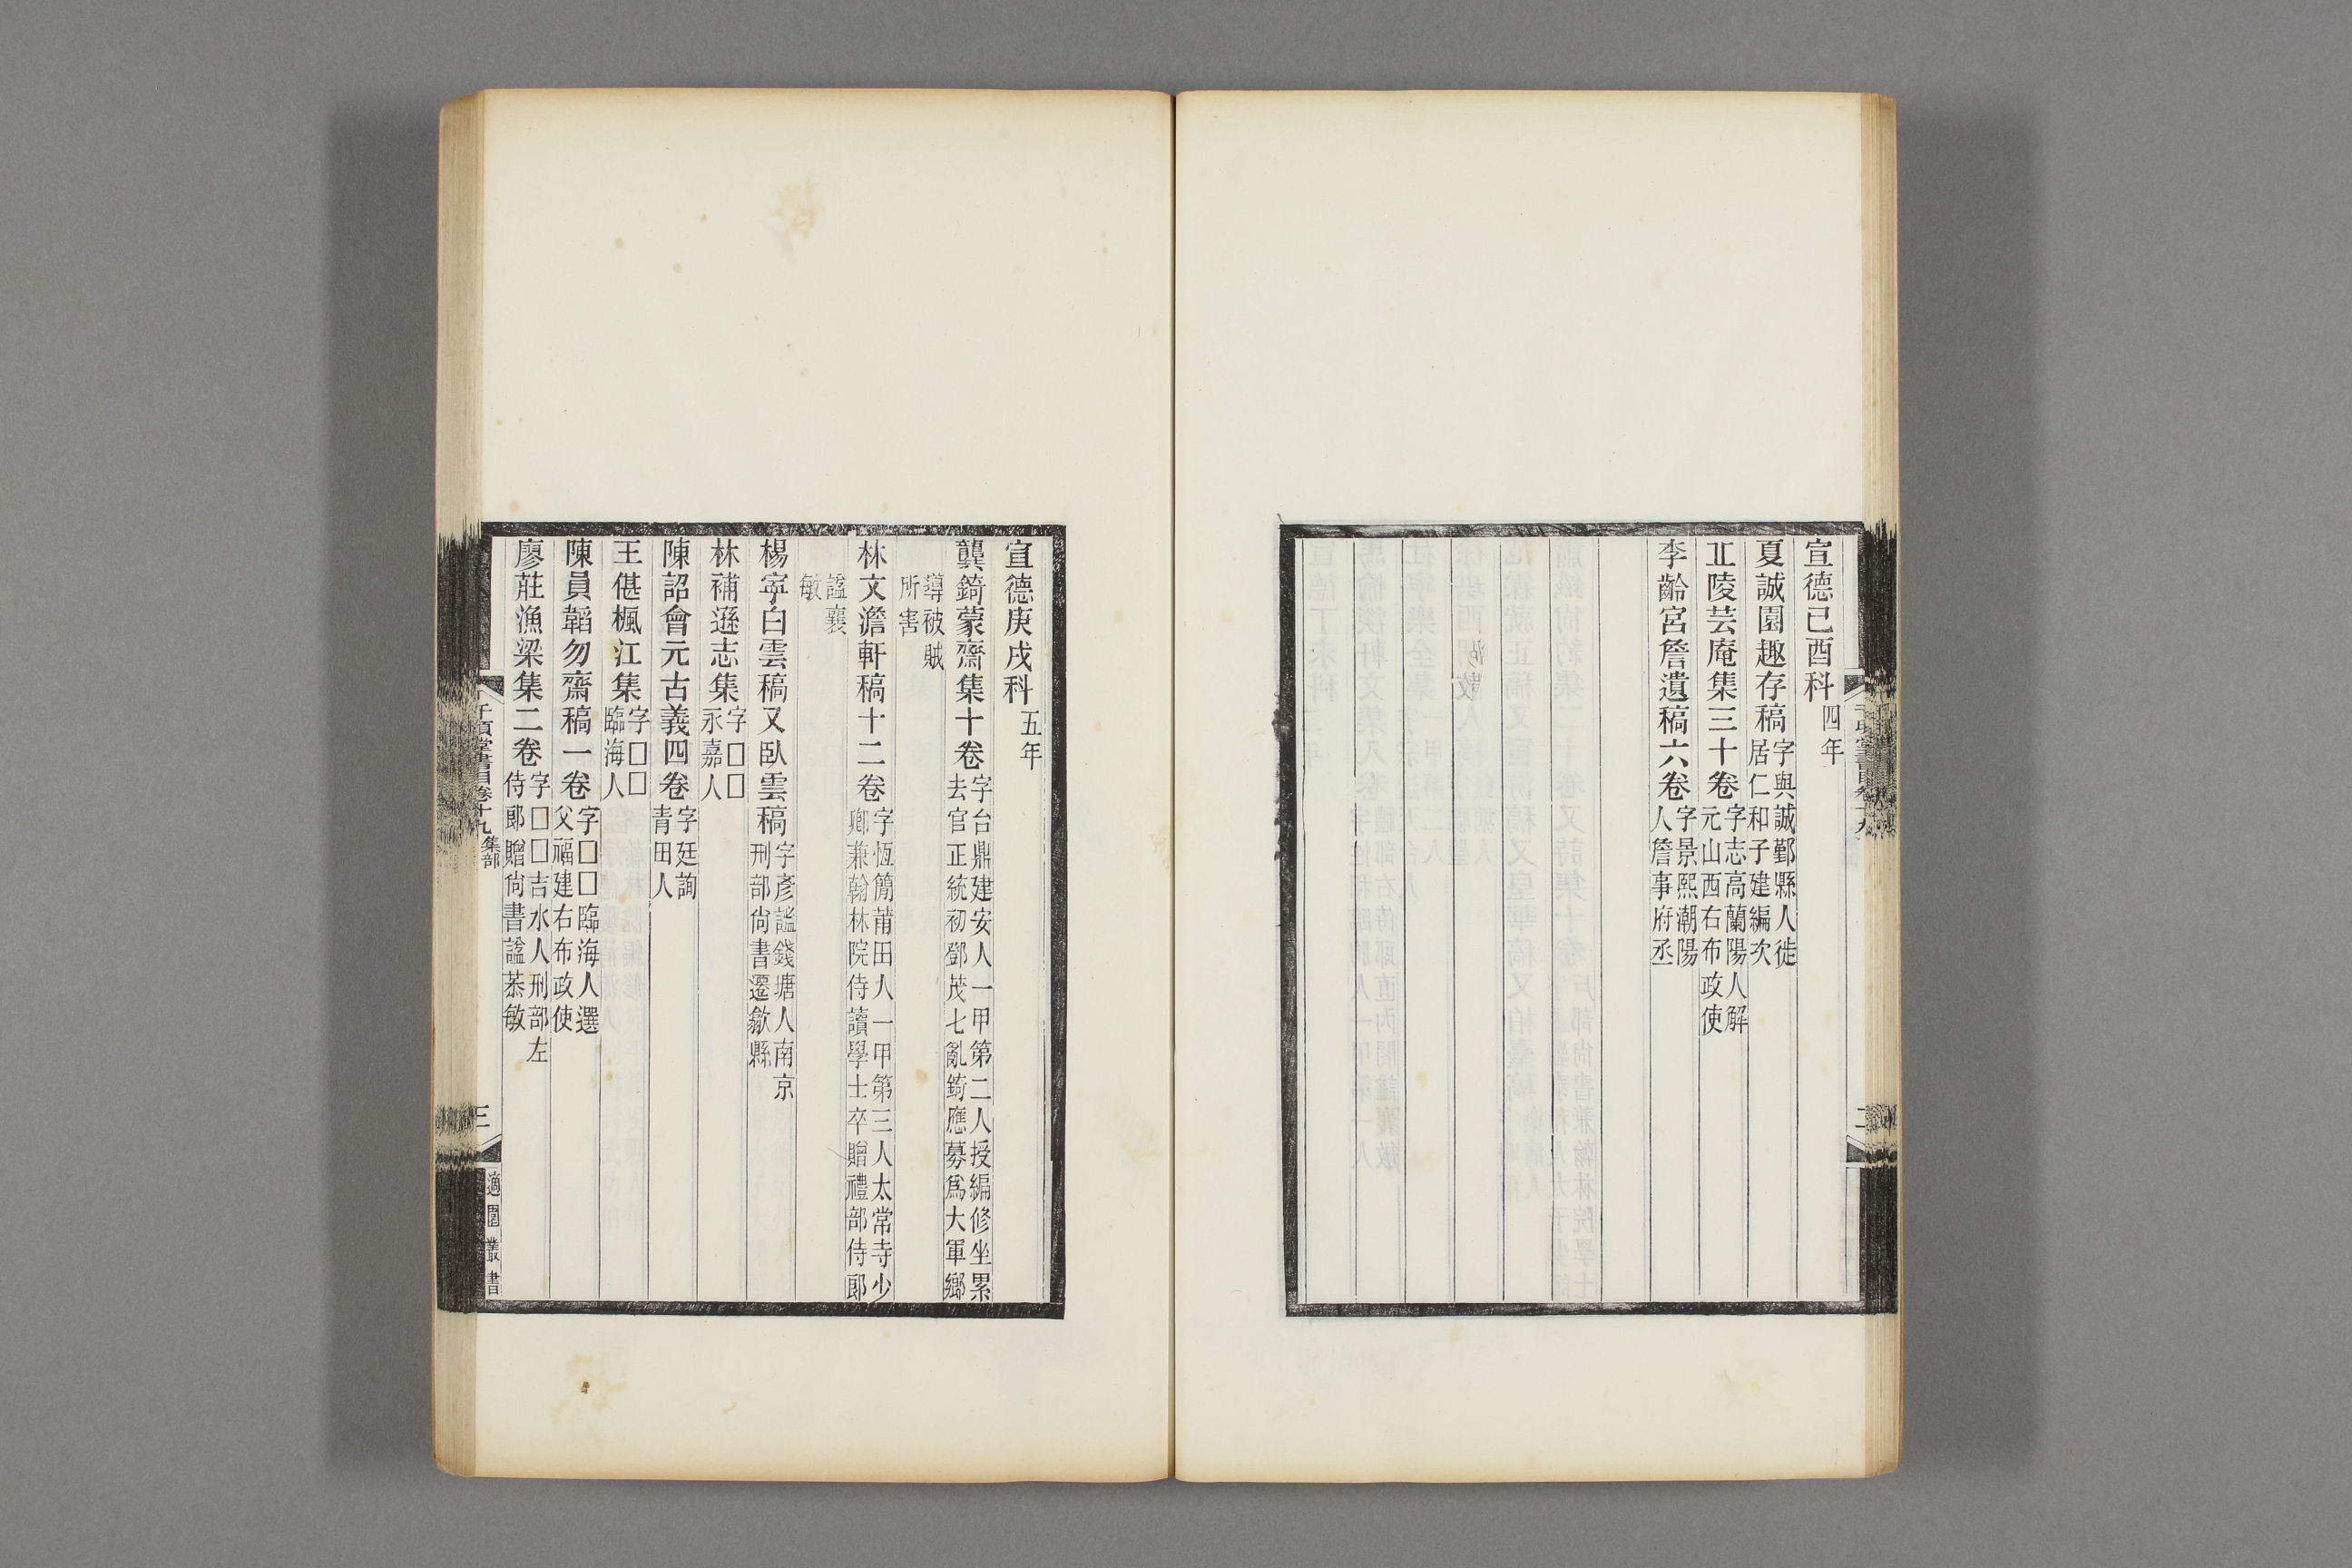 宣德己酉科四年
夏誠園趣存稿字與誠鄞縣人徙居仁和子建編次
丘陵芸庵集三十卷字志高蘭陽人解元山西右布政使
李齡宮詹遺稿六卷字景熙潮陽人詹事府丞
二
宣德庚戌科五年
龔錡蒙齋集十卷字台鼎建安人一甲第二人授編修坐累去官正統初鄧茂七亂錡應募爲大軍鄉
導被賊所害
林文澹軒稿十二卷字恆簡莆田人一甲第三人太常寺少卿兼翰林院侍讀學士卒贈禮部侍郎
謚襄敏
楊寧白雲稿又臥雲稿字彥謐錢塘人南京刑部尙書遷歙縣
林補遜志集字□□永嘉人
陳詔會元古義四卷字廷詢靑田人
王偡楓江集字□□臨海人
陳員韜勿齋稿一卷字□□臨海人選父福建右布政使
廖莊漁梁集二卷字□□吉水人刑部左侍郎贈尙書謚恭敏
千頃堂書目卷十九集部
三
適園叢書